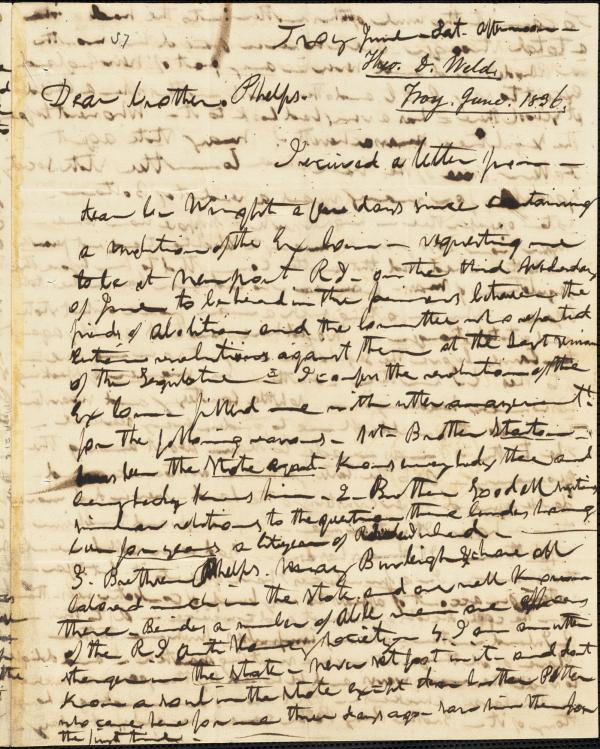 57
Troy June - Sat. afternoon -
Theo. D. Weld.
Troy. June. 1836.
Dear brother Phelps.
I received a letter from -
dear br Wright a few days since containing
a resolution of the Ex Com - requesting me
to be at Newport R I - on the third Wednesday
of June to be heard in the between the
friends of abolition and the Committee who reported
certain resolutions against them at the last session
of the Legislature = I confess the resolution of the
Ex Com - filled me with utter amazement!
for the following reasons - 1st - Brother Stanton -
has been the State agent - knows everybody there and
everybody knows him - 2 - Brother Goodell sustains
similar relations to the question there besides having
been for years a citizen of Rhode Island -
3. Brethren Phelps. May Burleigh & have all
labored much in the state and are well known
there - Besides a number of able men are officers
of the R I Anti Slavery Society - 4. I am an utter
stranger in the State - never set foot in it - and dont
know a soul in the state except dear brother Potter
who came here for me three days ago - saw him then for
the first time -